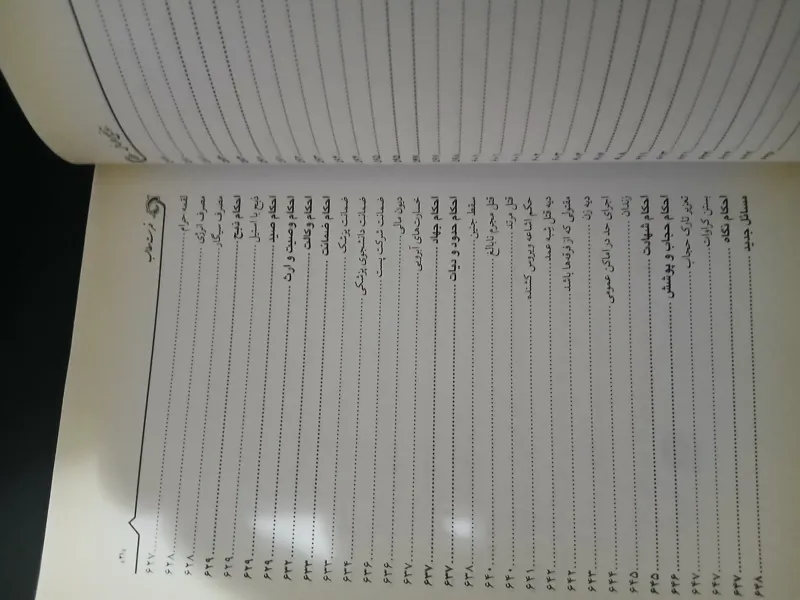 فهرست مطالب
لقمه حرام ۶۲۷
مصرف انرژی ۶۲۸
مصرف سیگار ۶۲۸
احکام ذبح ۶۲۹
ذبح با استیل ۶۲۹
احکام صید ۶۲۹
احکام وصیت و ارث ۶۲۹
احکام وکالت ۶۳۲
احکام ضمانت ۶۳۳
ضمانت پزشک ۶۳۳
ضمانت دانشجوی پزشکی ۶۳۴
ضمانت شرکت پست ۶۳۶
دیون مالی ۶۳۶
خسارت‌های آبرویی ۶۳۷
احکام جهاد ۶۳۷
احکام حدود و دیات ۶۳۷
سقط جنین ۶۳۸
قتل مجرم نابالغ ۶۴۰
قتل مرتد ۶۴۰
حکم اشاعه ویروس کشنده ۶۴۱
دیه قتل شبه عمد ۶۴۲
مقتولی که از فرقه‌ها باشد ۶۴۲
دیه زن ۶۴۳
اجرای حد در اماکن عمومی ۶۴۴
زندان ۶۴۵
احکام شهادت ۶۴۵
احکام حجاب و پوشش ۶۴۶
تعزیر تارک حجاب ۶۴۷
بستن کراوات ۶۴۷
احکام نکاح ۶۴۷
مسائل جدید ۶۴۸